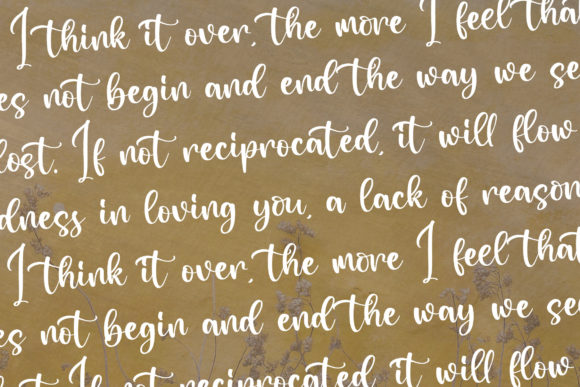 I think it over, the more I feel that
es not begin and end the way we se
lost. If not reciprocated, it will flow
dness in loving you, a lack of reason
I think it over, the more I feel that
es not begin and end the way we se
If not reciprocated, it will flow